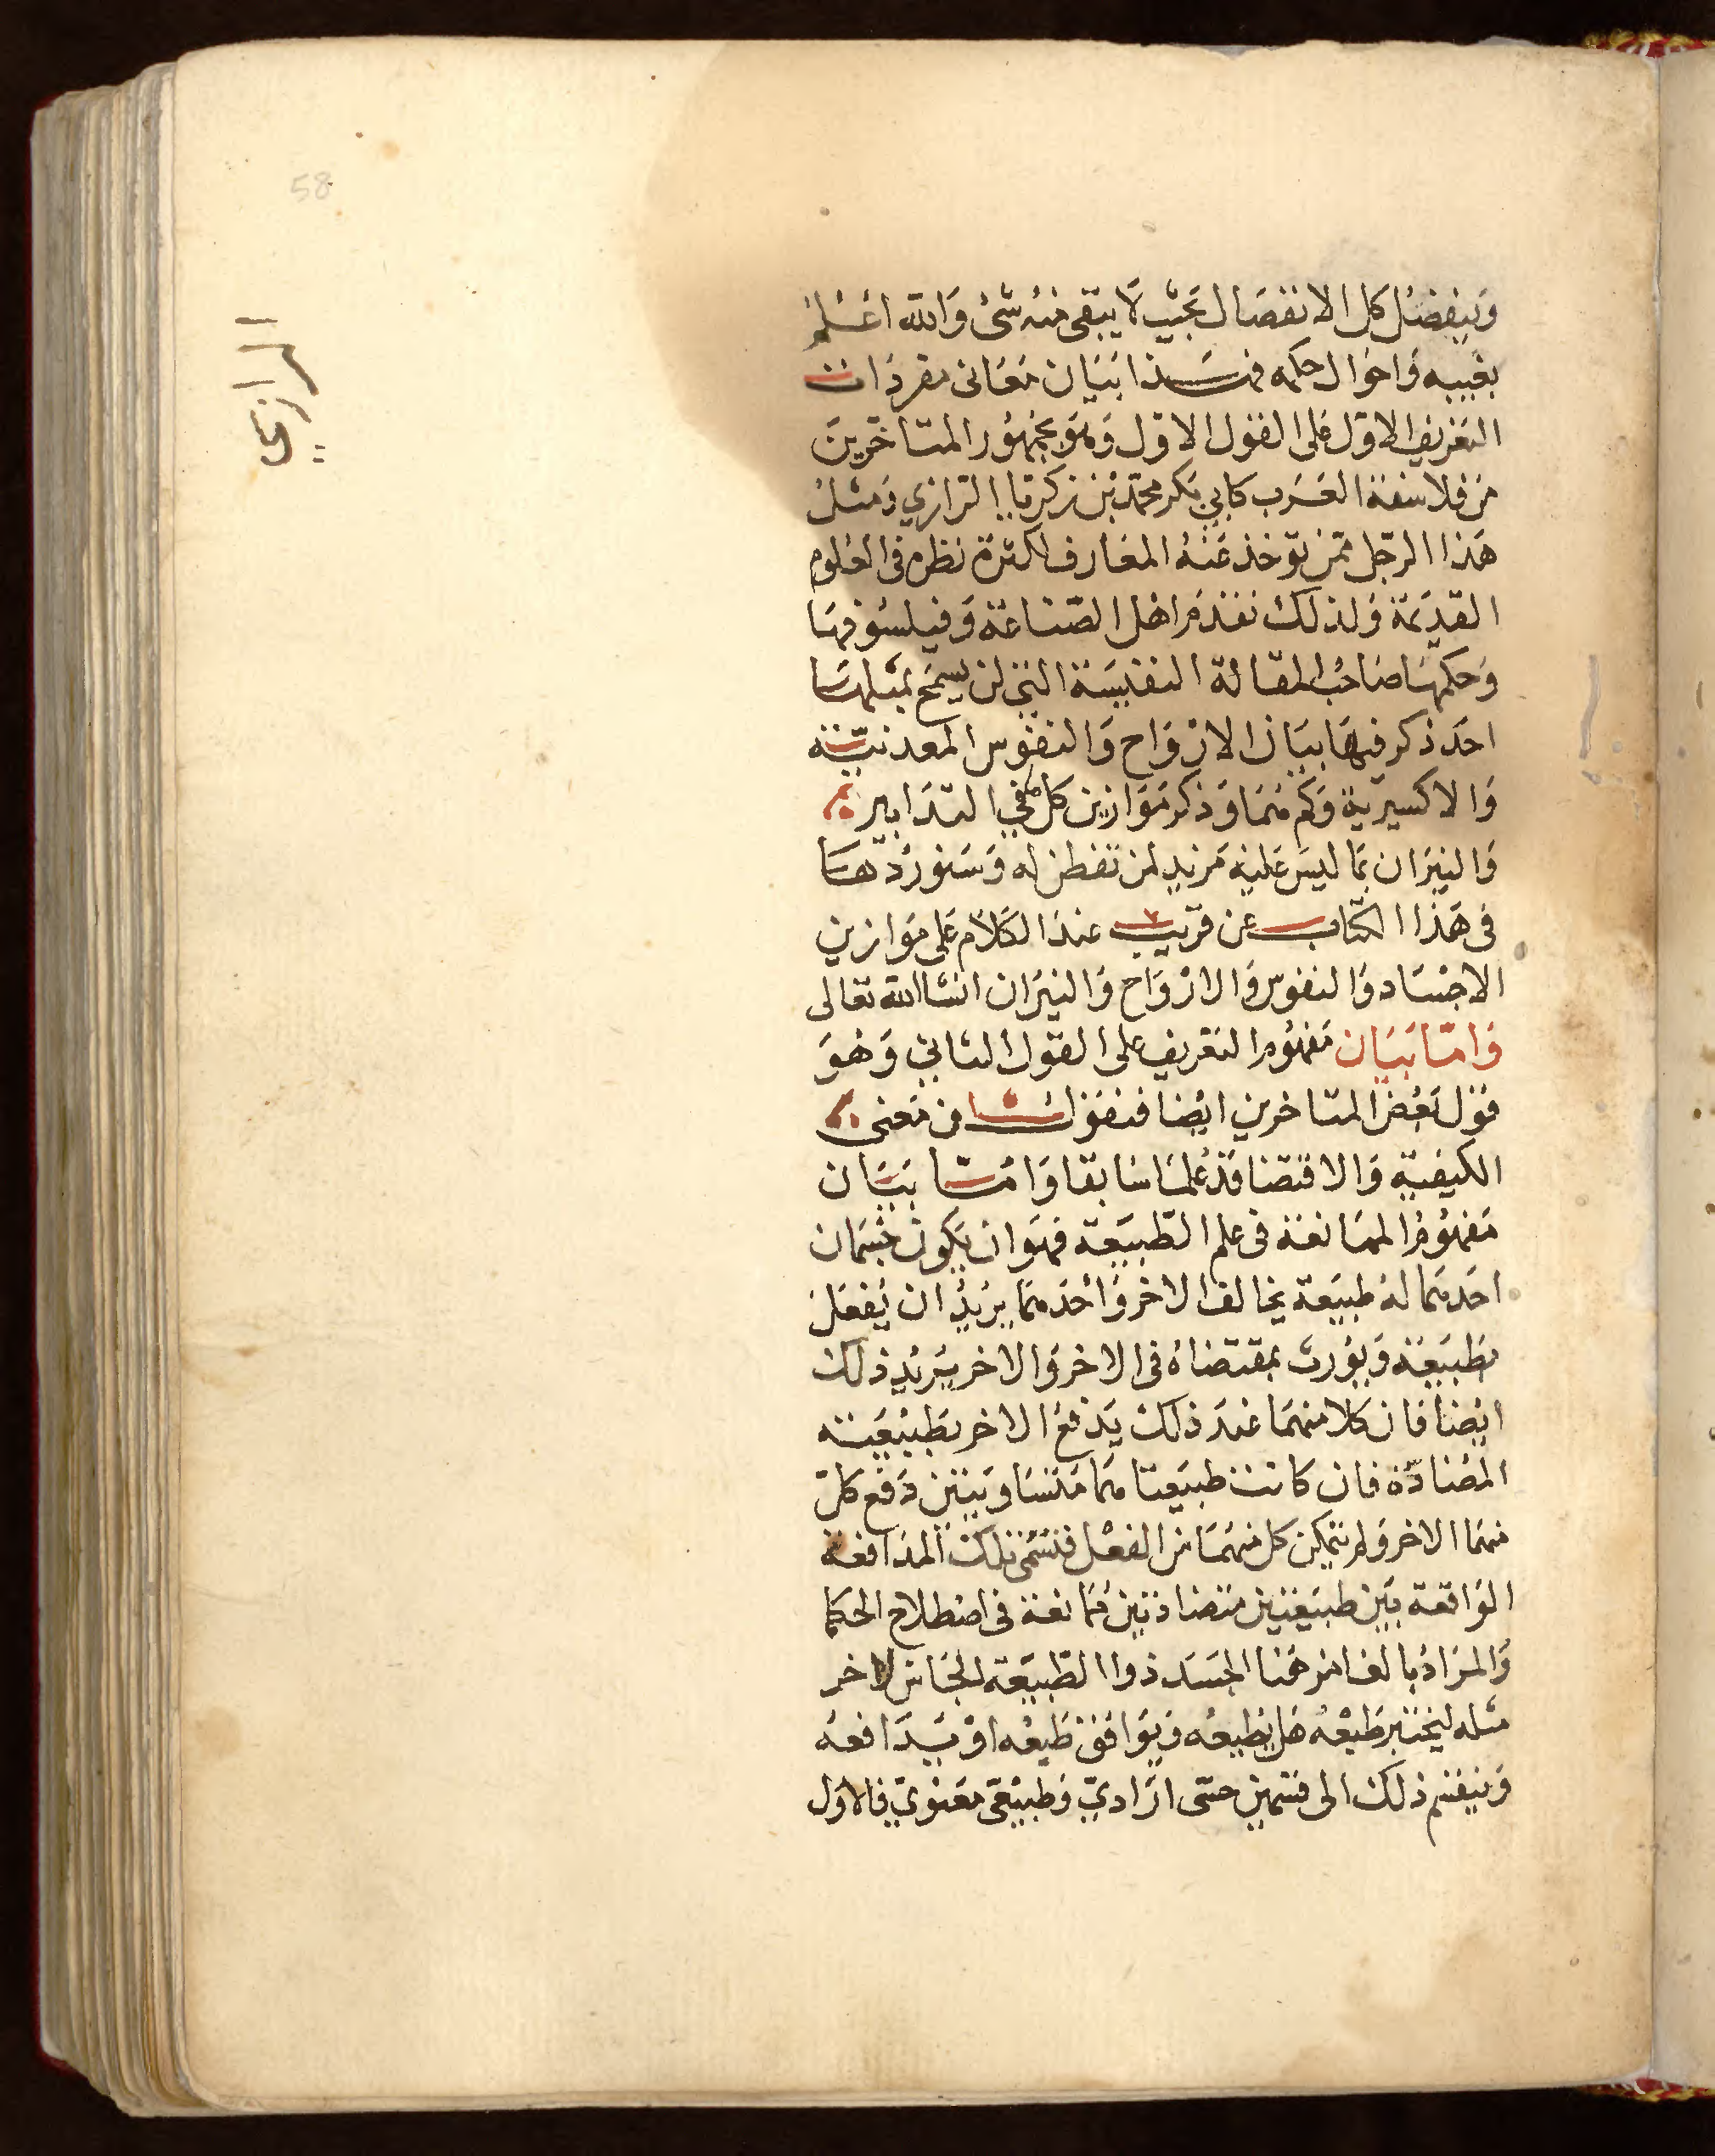 58
الرازي
وينفصل كل الانفصال بحيث لا يبقى منه شئ والله اعلم
بغيبه واحوال حكمه فهذا بيان معانى مفردات
التعريف الاول على القول الاول وهو لجمهور المتاخرين
من فلاسفة العرب كابي بكر محمد بن زكريا الرازي ومثل
هذا الرجل ممن توخذ عنه المعارف لكثرة نظره فى العلوم
القديمة ولذلك نقدم اهل الصناعة وفيلسوفها
وحكمها صاحب المقالة النفيسة التي لن يسمح بمثلها
احد ذكر فيها بيان الارواح والنفوس المعدنية
والاكسيرية وكم هما وذكر موازين كل في التدابير
والنيران بما ليس عليه مزيد لمن تفطن له وسنوردها
فى هذا الكتاب عن قريب عند الكلام على موازين
الاجساد والنفوس والارواح والنيران انشا الله تعالى
واما بيان مفهوم التعريف على القول الثاني وهو
قول بعض المتاخرين ايضا فنقول ان معنى
الكيفية والاقتضا قد علما سابقا واما بيان
مفهوم الممانعة فى علم الطبيعة فهو ان يكون جسمان
احدهما له طبيعة يخالف الاخر واحدهما يريد ان يفعل
بطبيعته ويورث بمقتضاه فى الاخر والاخر يريد ذلك
ايضا فان كلا منهما عند ذلك يدفع الاخر بطبيعته
المضادة فان كانت طبيعتاهما متساويتين دفع كل
منهما الاخر ولم يتمكن كل منهما من الفعل فتسمى تلك المدافعة
الواقعة بين طبيعتين متضادتين ممانعة فى اصطلاح الحكما
والمراد بالغامز هنا الجسد ذوا الطبيعة الجاس لاخر
مثله ليختبر طبعه هل يطيعه ويوافق طبعه او يدافعه
وينقسم ذلك الى قسمين حسى ارادي وطبيعى معنوي فالاول